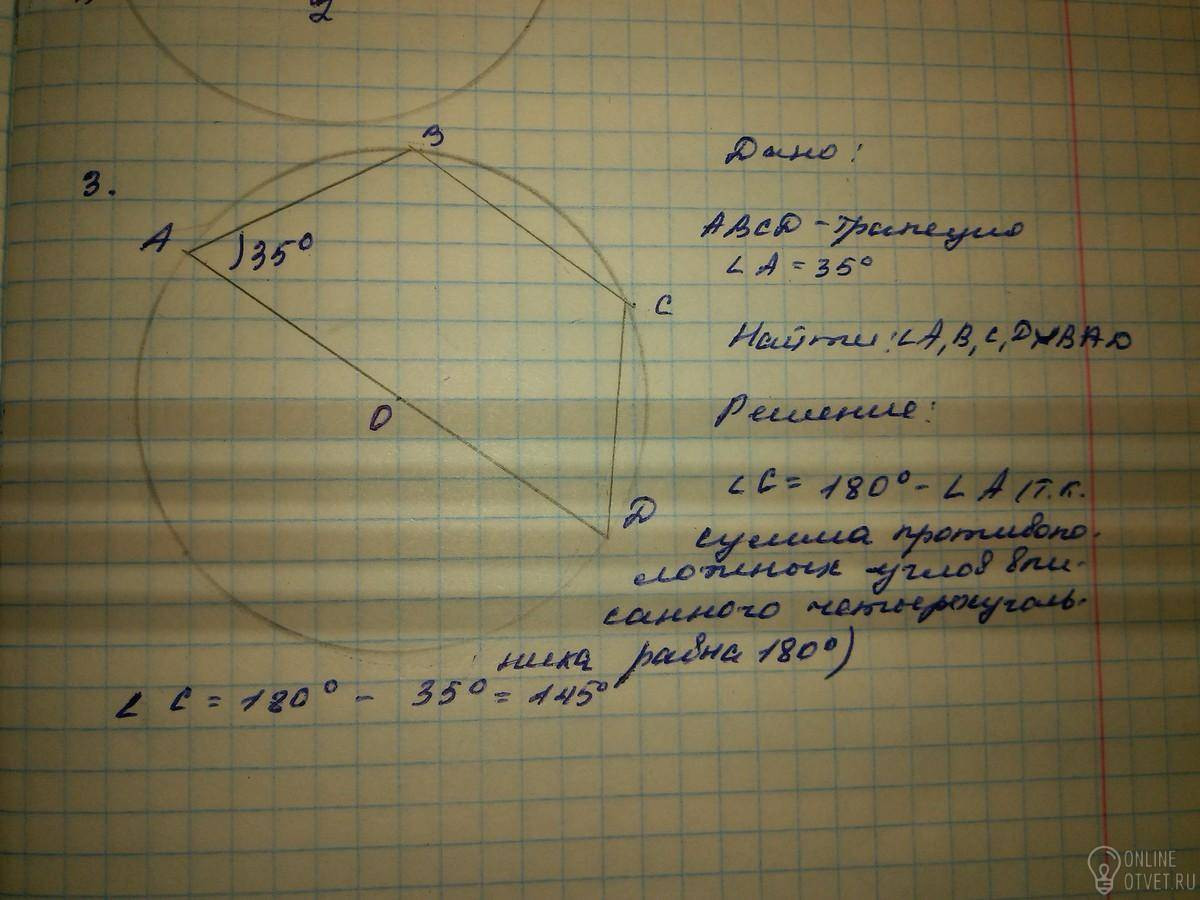 2
3.
B
A
35°
C
O
D
Дано:
ABCD - трапеция
∠A = 35°
Найти: ∠A, B, C, D BAD
Решение:
∠C = 180° - ∠A (т.к.
сумма противопо-
ложных углов впи-
санного четырехуголь-
ника равна 180°)
∠C = 180° - 35° = 145°
ONLINE
OTVET.RU